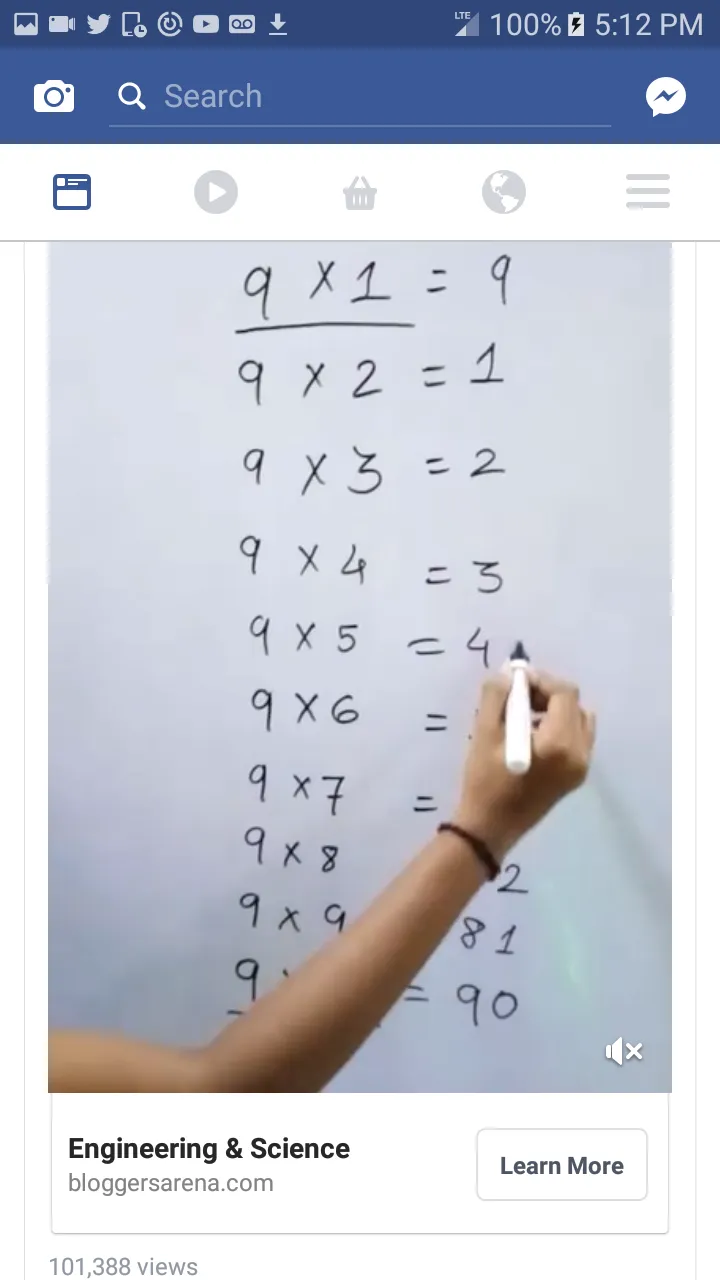 LTE 100% 5:12 PM
Search
9 × 1 = 9
9 × 2 = 1
9 × 3 = 2
9 × 4 = 3
9 × 5 = 4
9 × 6 =
9 × 7 =
9 × 8 2
9 × 9 81
9 = 90
Engineering & Science
bloggersarena.com
Learn More
101,388 views